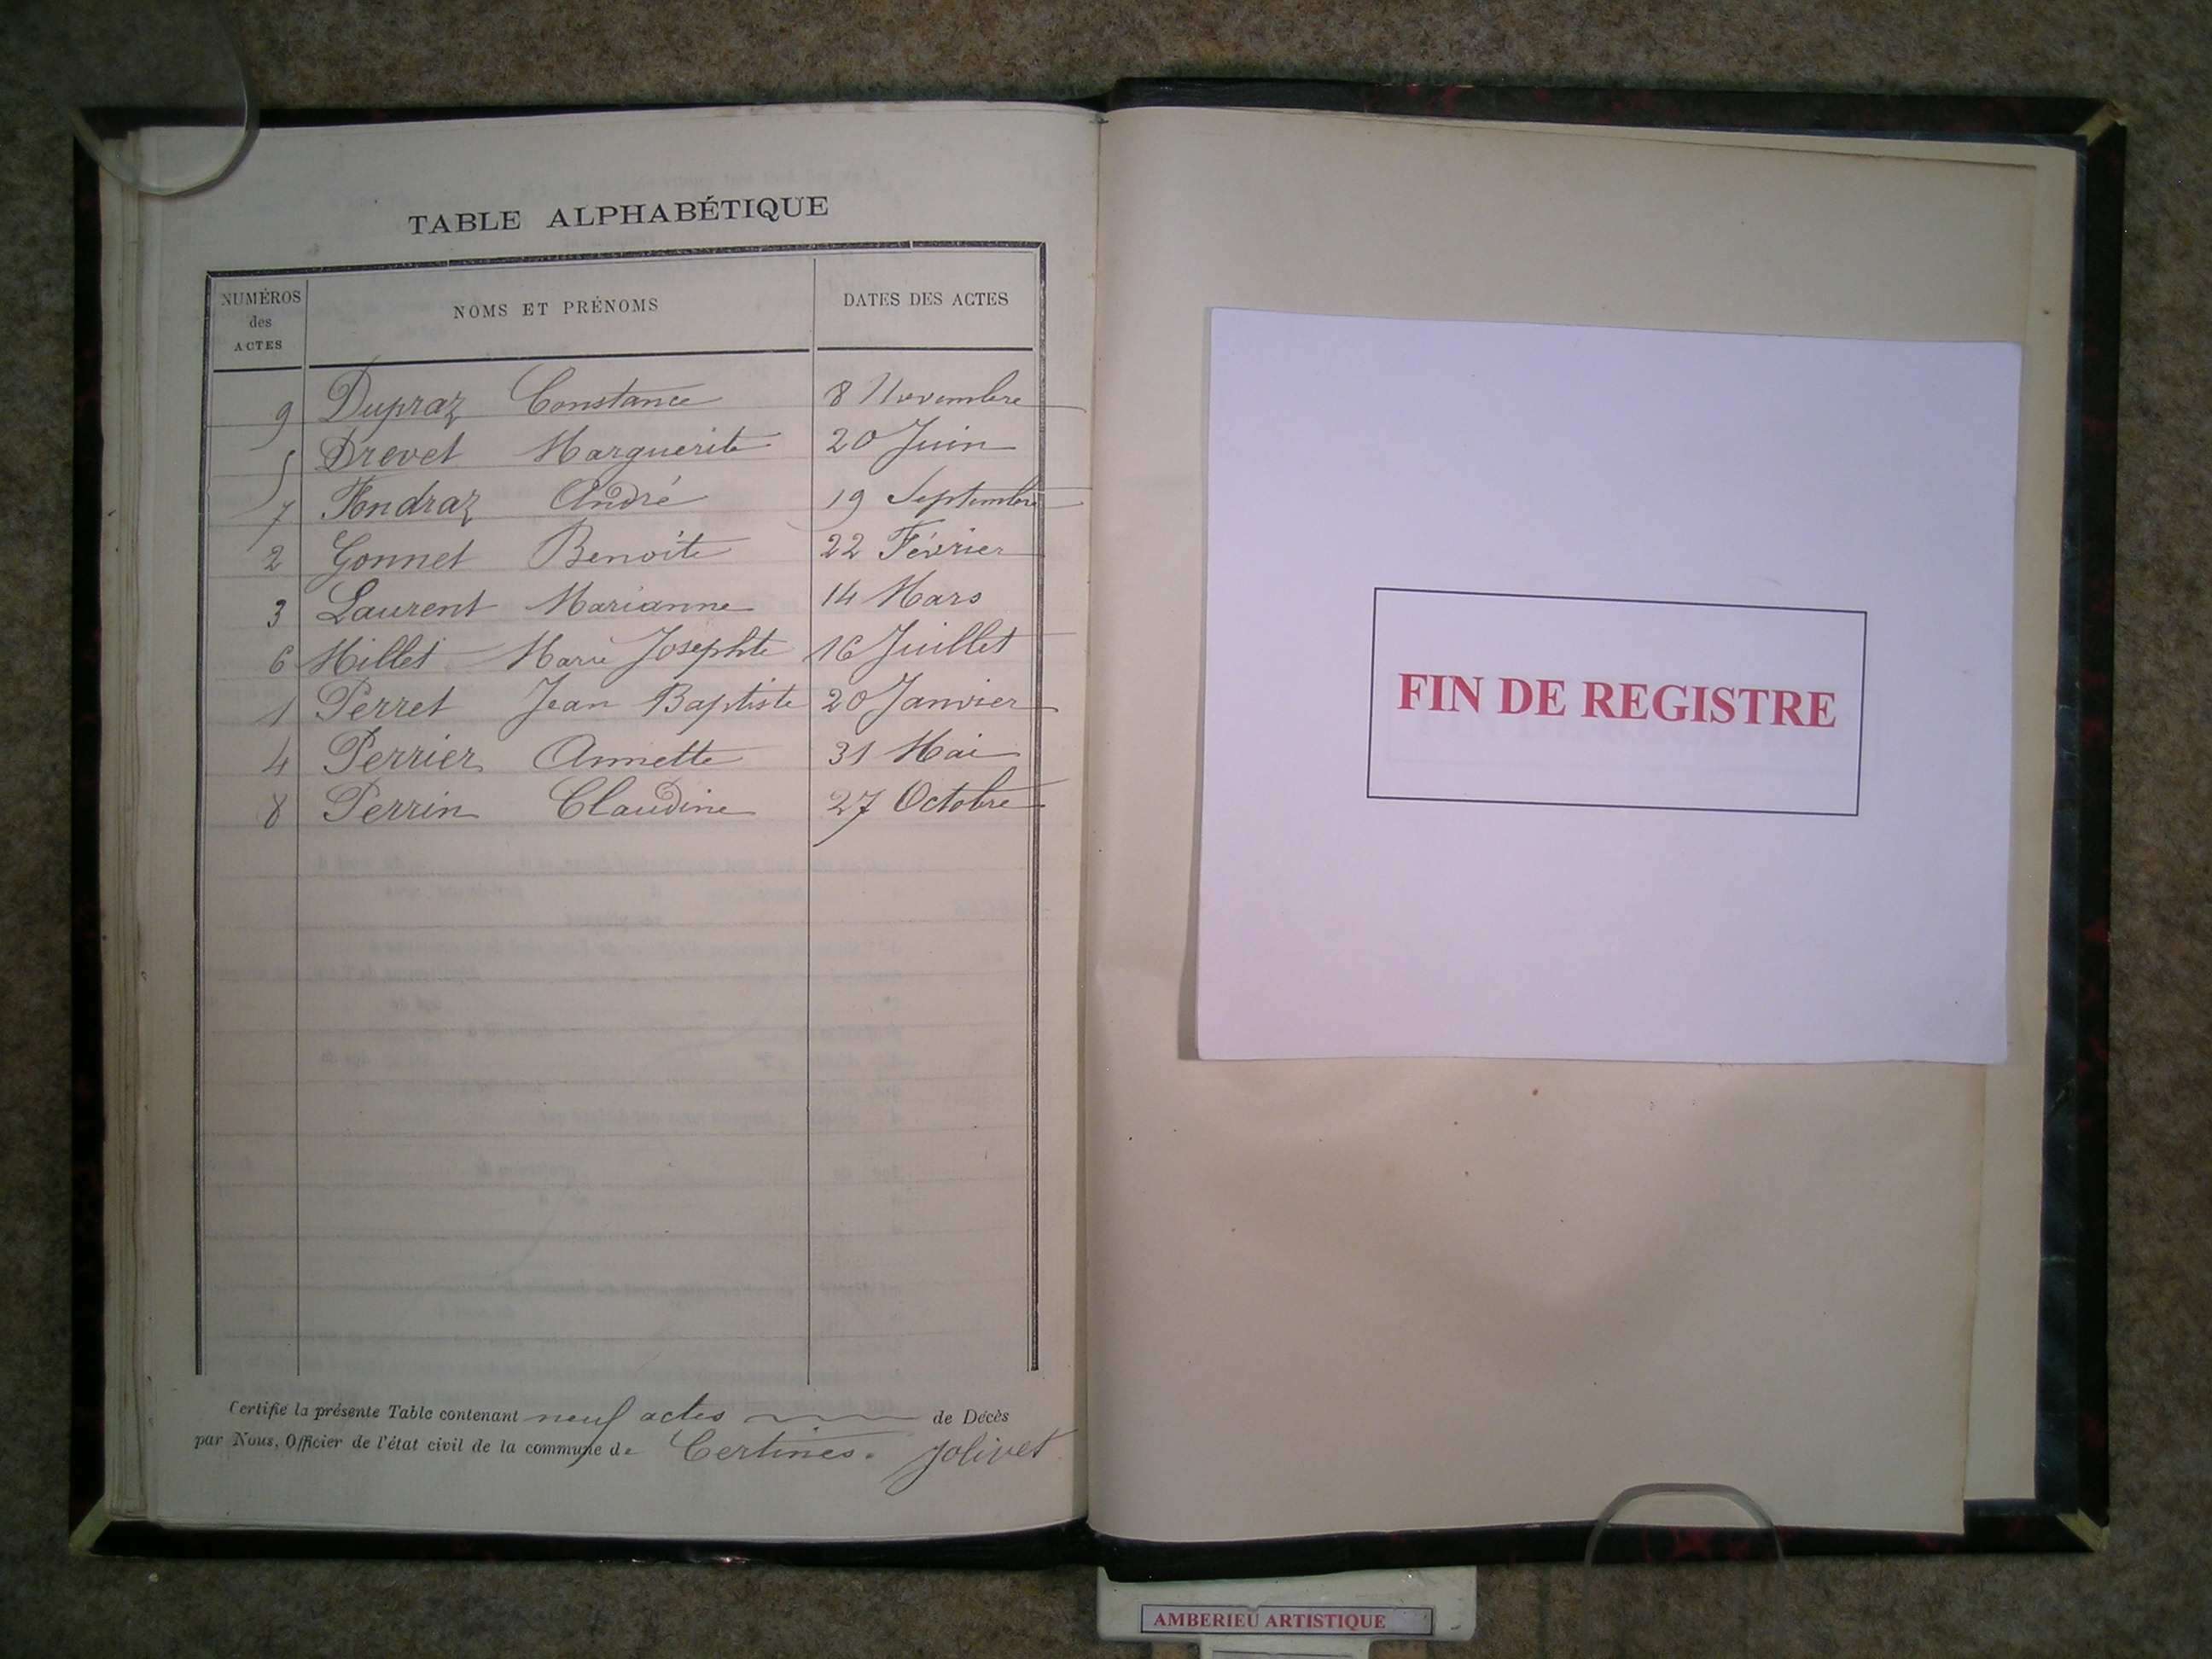 TABLE ALPHABÉTIQUE
NUMÉROS des ACTES NOMS ET PRÉNOMS DATES DES ACTES
9 Dupraz Constance 8 Novembre
5 Drevet Marguerite 20 Juin
7 Fondraz André 19 Septembre
2 Gonnet Benoite 22 Février
3 Laurent Marianne 14 Mars
6 Millet Marie Josephte 16 Juillet
1 Perret Jean Baptiste 20 Janvier
4 Perrier Annette 31 Mai
8 Perrin Claudine 27 Octobre
Certifié la présente Table contenant neuf actes de Décès
par Nous, Officier de l'état civil de la commune de Certines. Jolivet
FIN DE REGISTRE
AMBERIEU ARTISTIQUE